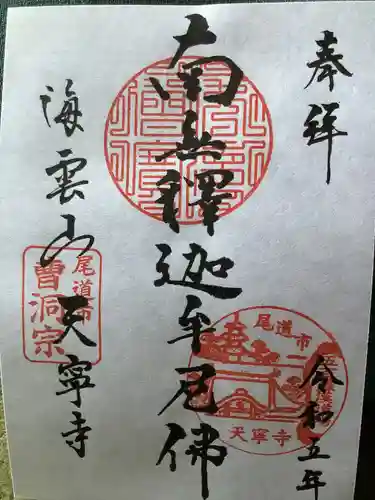 奉拝
令和五年
南無釋迦牟尼佛
海雲山天寧寺
尾道市
曹洞宗
尾道市
天寧寺